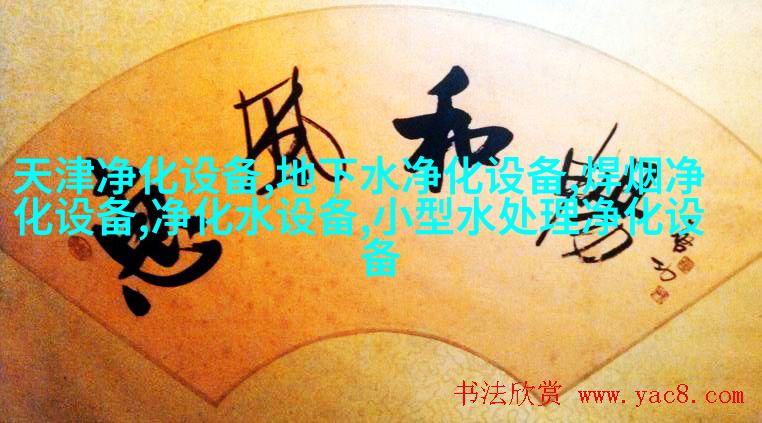 惠風和暢
启功
天津净化设备,地下水净化设备,焊烟净
化设备,净化水设备,小型水处理净化设
备
书法欣赏 www.yac8.com